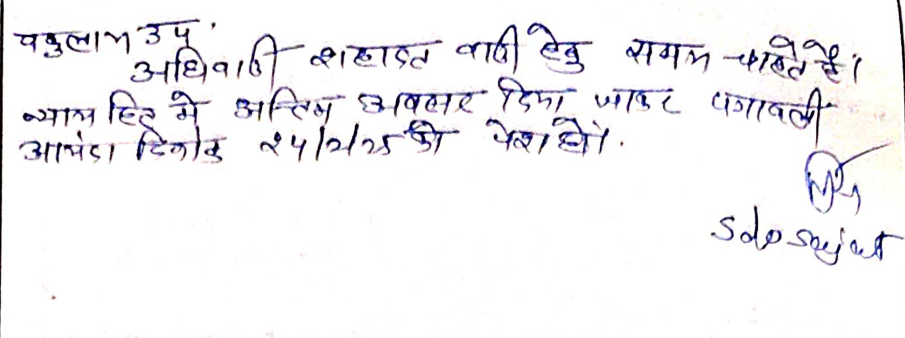 वकुलाम उप.
अधिवादी शहादत वादी हेतु समय चाहते है।
न्याय हित मे अन्तिम अवसर दिया जाकर पत्रावली
आयंदा दिनांक 24/2/25 को पेश हो।
SDO Sojat